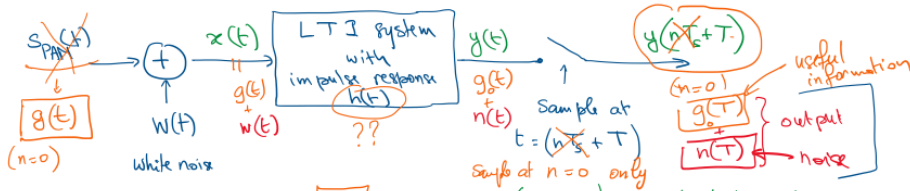 S_PAM(t)
g(t)
(n=0)
+
w(t)
white noise
x(t)
=
g(t)
+
w(t)
LTI system
with
impulse response
h(t)
??
y(t)
g₀(t)
+
n(t)
Sample at
t = (nTs + T)
Sample at n=0 only
y(nTs + T)
(n=0)
g₀(T)
+
n(T)
useful
information
output
noise